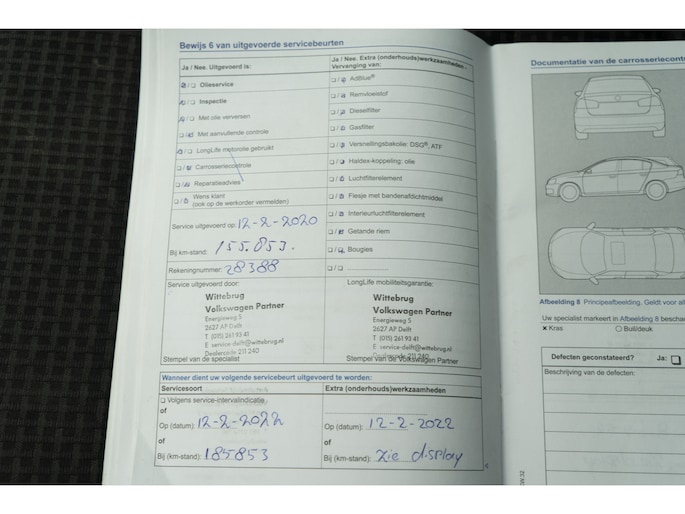 Bewijs 6 van uitgevoerde servicebeurten
Ja / Nee. Uitgevoerd is:
Olieservice
Inspectie
Met olie verversen
Met aanvullende controle
LongLife motorolie gebruikt
Carrosseriecontrole
Reparatieadvies
Wens klant
(ook op de werkorder vermelden)
Service uitgevoerd op: 12-2-2020
Bij km-stand: 155.853.
Rekeningnummer: 28388
Ja / Nee. Extra (onderhouds)werkzaamheden -
Vervanging van:
AdBlue®
Remvloeistof
Dieselfilter
Gasfilter
Versnellingsbakolie: DSG®, ATF
Haldex-koppeling: olie
Luchtfilterelement
Flesje met bandenafdichtmiddel
Interieurluchtfilterelement
Getande riem
Bougies
Service uitgevoerd door:
Wittebrug
Volkswagen Partner
Energieweg 5
2627 AP Delft
T (015) 261 93 41
E service-delft@wittebrug.nl
Dealercode 211 240
Stempel van de specialist
LongLife mobiliteitsgarantie:
Wittebrug
Volkswagen Partner
Energieweg 5
2627 AP Delft
T (015) 261 93 41
E service-delft@wittebrug.nl
Dealercode 211 240
Stempel van de Volkswagen Partner
Wanneer dient uw volgende servicebeurt uitgevoerd te worden:
Servicesoort
Volgens service-intervalindicatie
of
Op (datum): 12-2-2022
of
Bij (km-stand): 185853
Extra (onderhouds)werkzaamheden
Op (datum): 12-2-2022
of
Bij (km-stand): zie display
Documentatie van de carrosseriecontr
Afbeelding 8 Principeafbeelding. Geldt voor all
Uw specialist markeert in Afbeelding 8 bescha
x Kras
O Buil/deuk
Defecten geconstateerd? Ja:
Beschrijving van de defecten: